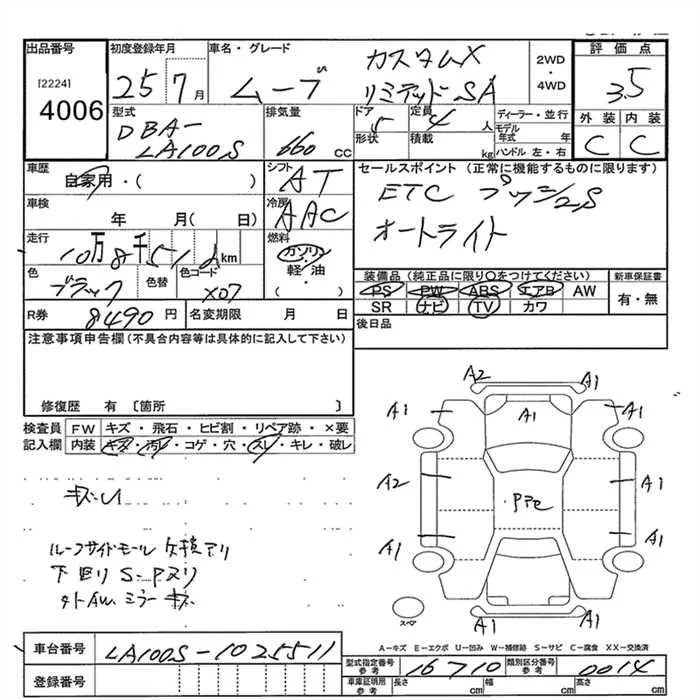 出品番号
[2224]
4006
初度登録年月
25 7月
車名・グレード
ムーブ
カスタムX
リミテッドSA
2WD・4WD
評価点
3.5
外装 内装
C C
型式
DBA-
LA100S
排気量
660 cc
ドア 5
形状
定員 4 人
積載 kg
ディーラー・並行
モデル年式 年
ハンドル 左・右
車歴
自家用・( )
シフト
AT
セールスポイント (正常に機能するものに限ります)
ETC プッシュS
オートライト
車検
年 月( 日)
冷房
AAC
走行
10万8千51 km
燃料
ガソリン・軽・油
( )
色
ブラック
色替
色コード
X07
装備品 (純正品に限り○をつけてください)
PS PW ABS エアB AW
SR ナビ TV カワ
新車保証書
有・無
R券
8490 円
名変期限 月 日
後日品
注意事項申告欄 (不具合内容等は具体的に記入して下さい)
修復歴 有 〔箇所 〕
検査員記入欄
FW キズ・飛石・ヒビ割・リペア跡・×要
内装 キズ・汚れ・コゲ・穴・スレ・キレ・破レ
ルーフサイドモール 欠損アリ
下回り S-Pヌリ
A2 A1
A1 A1 A1
A2 A1
A1 A1
A1 A1
スペア
A-キズ E-エクボ U-凹み W-補修跡 S-サビ C-腐食 XX-交換済
車台番号
LA100S-1025511
登録番号
型式指定番号 参考
16710
類別区分番号 参考
0014
車庫証明用 参考
長さ cm
幅 cm
高さ cm